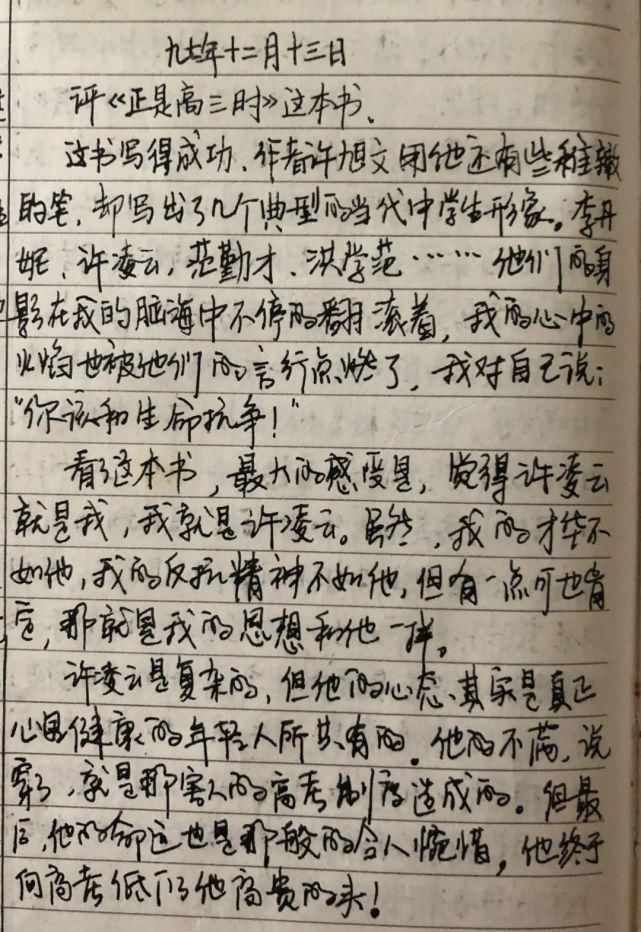 九七年十二月十三日
评《正是高三时》这本书、
这书写得成功、作者许旭文用他还有些稚嫩
的笔，却写出了几个典型的当代中学生形象。李丹
妮、许凌云，范勤才、洪学范……他们的身
影在我的脑海中不停的翻滚着，我的心中的
火焰也被他们的言行点燃了，我对自己说：
“你该和生命抗争！”
看了这本书，最大的感受是，觉得许凌云
就是我，我就是许凌云。虽然，我的才华不
如他，我的反抗精神不如他，但有一点可也肯
定，那就是我的思想和他一样。
许凌云是复杂的，但他的心态、其实是真正
心里健康的年轻人所共有的。他的不满，说
穿了，就是那害人的高考制度造成的。但最
后，他的命运也是那般的令人惋惜，他终于
向高考低下了他高贵的头！